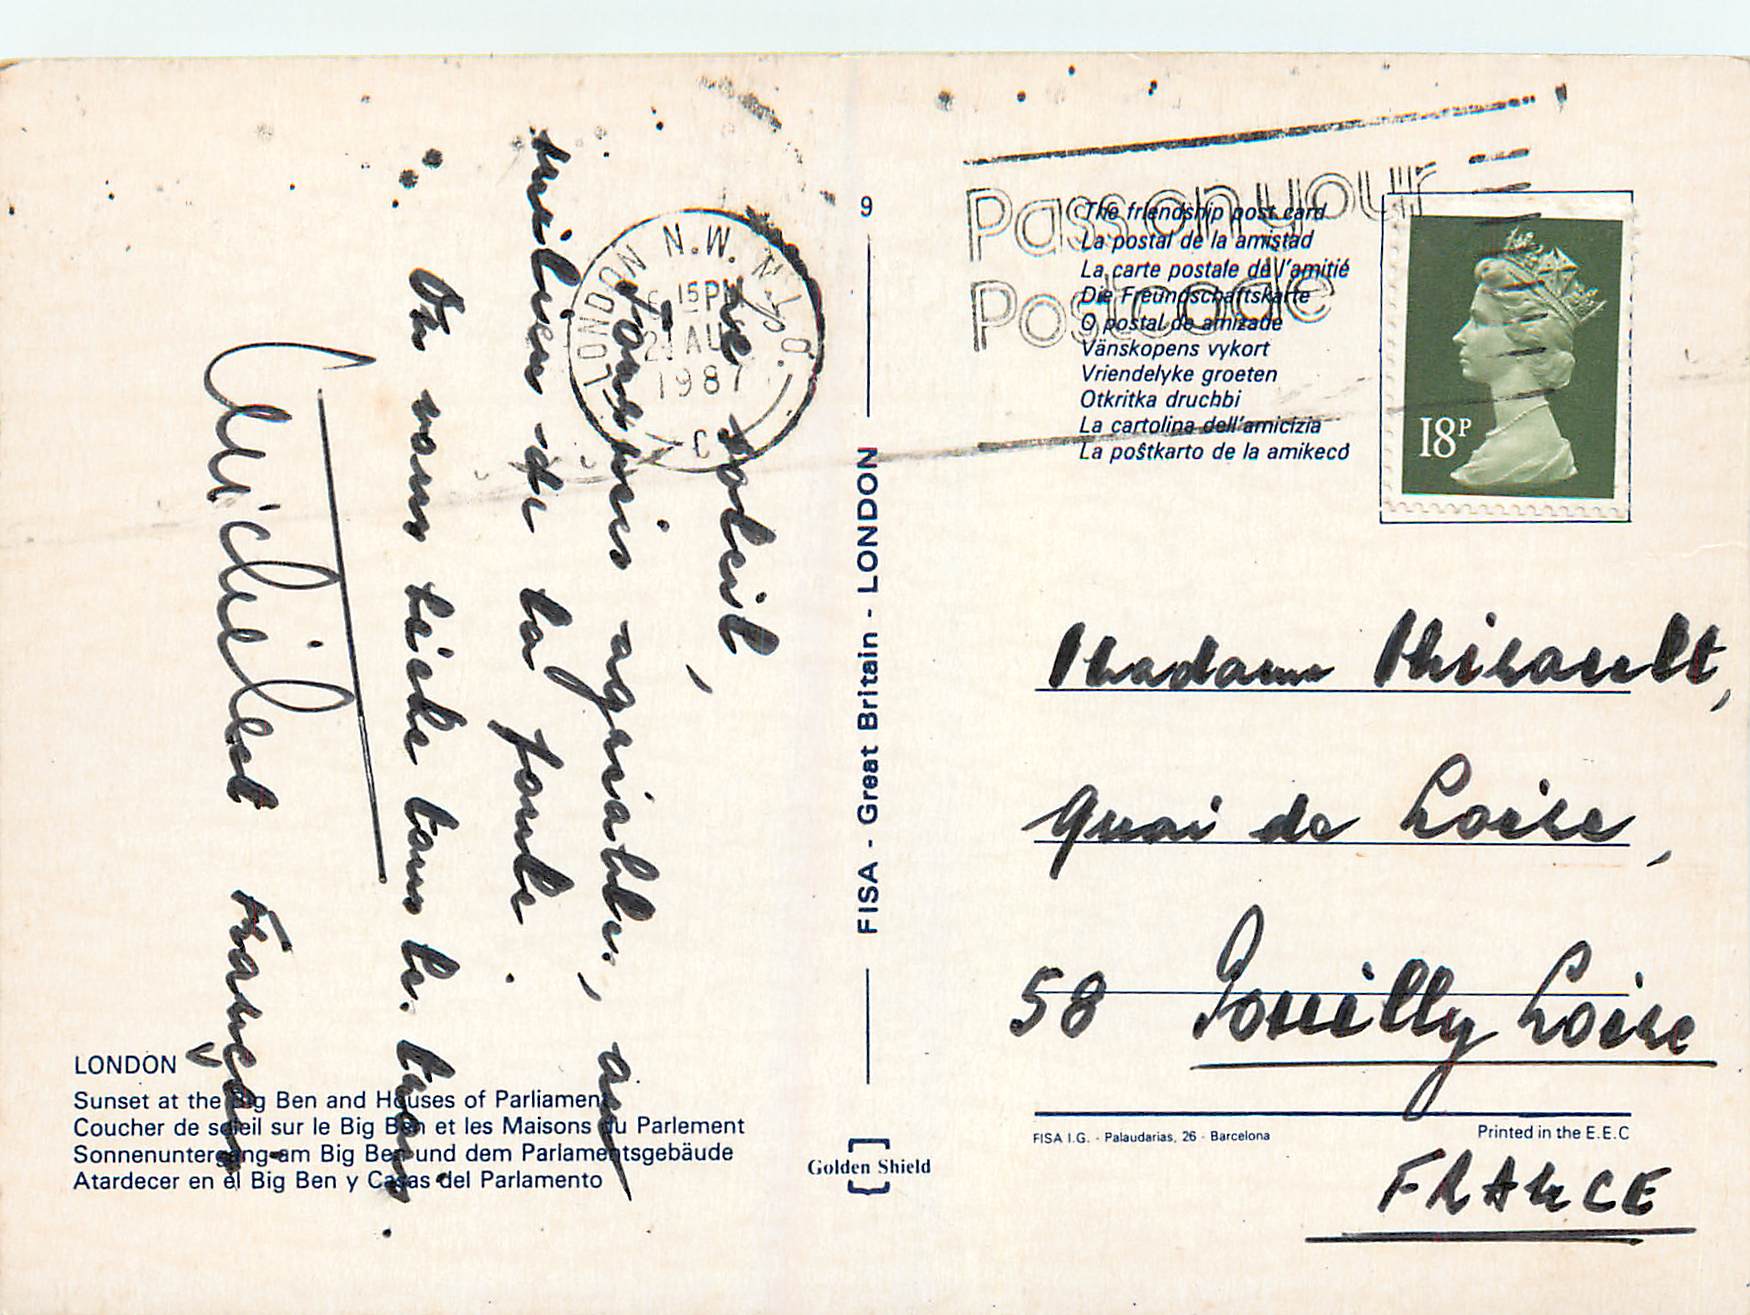 Le soleil,
toujours agréable, au
milieu de la foule.
On vous lèche tous les trois.
Michel et François
LONDON
Sunset at the Big Ben and Houses of Parliament
Coucher de soleil sur le Big Ben et les Maisons du Parlement
Sonnenuntergang am Big Ben und dem Parlamentsgebäude
Atardecer en el Big Ben y Casas del Parlamento
LONDON N.W. M.L.O.
15PM
AU
1987
C
9
FISA - Great Britain - LONDON
Golden Shield
Pass on your
Postcode
The friendship post card
La postal de la amistad
La carte postale de l'amitié
Die Freundschaftskarte
O postal de amizade
Vänskopens vykort
Vriendelyke groeten
Otkritka druchbi
La cartolina dell'amicizia
La poŝtkarto de la amikecd
18P
Madame Thibault,
Quai de Loire,
58 Pouilly Loire
FISA I.G. - Palaudarias, 26 - Barcelona
Printed in the E.E.C
FRANCE